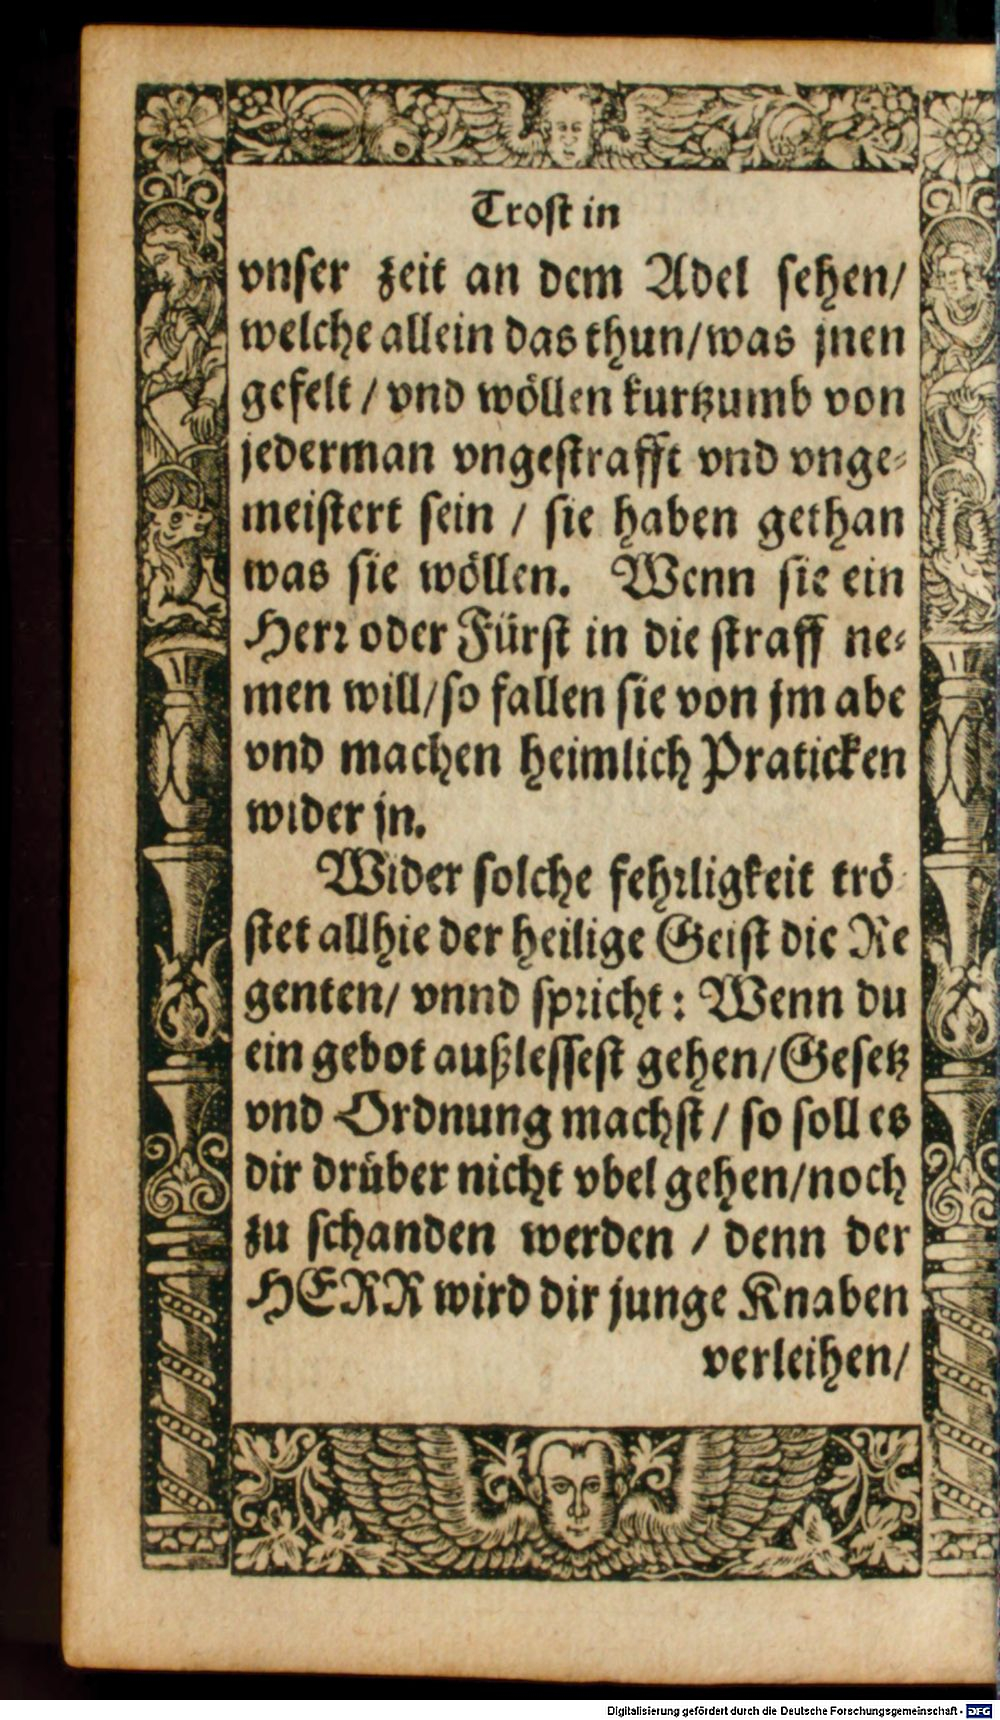 Trost in
vnser zeit an dem Adel sehen/
welche allein das thun/was jnen
gefelt / vnd wöllen kurtzumb von
jederman vngestrafft vnd vnge-
meistert sein / sie haben gethan
was sie wöllen. Wenn sie ein
Herr oder Fürst in die straff ne-
men will/so fallen sie von jm abe
vnd machen heimlich Praticken
wider jn.
Wider solche fehrligkeit trö
stet allhie der heilige Geist die Re
genten/ vnnd spricht: Wenn du
ein gebot außlessest gehen/Gesetz
vnd Ordnung machst/ so soll es
dir drüber nicht vbel gehen/noch
zu schanden werden / denn der
HERR wird dir junge Knaben
verleihen/
Digitalisierung gefördert durch die Deutsche Forschungsgemeinschaft - DFG